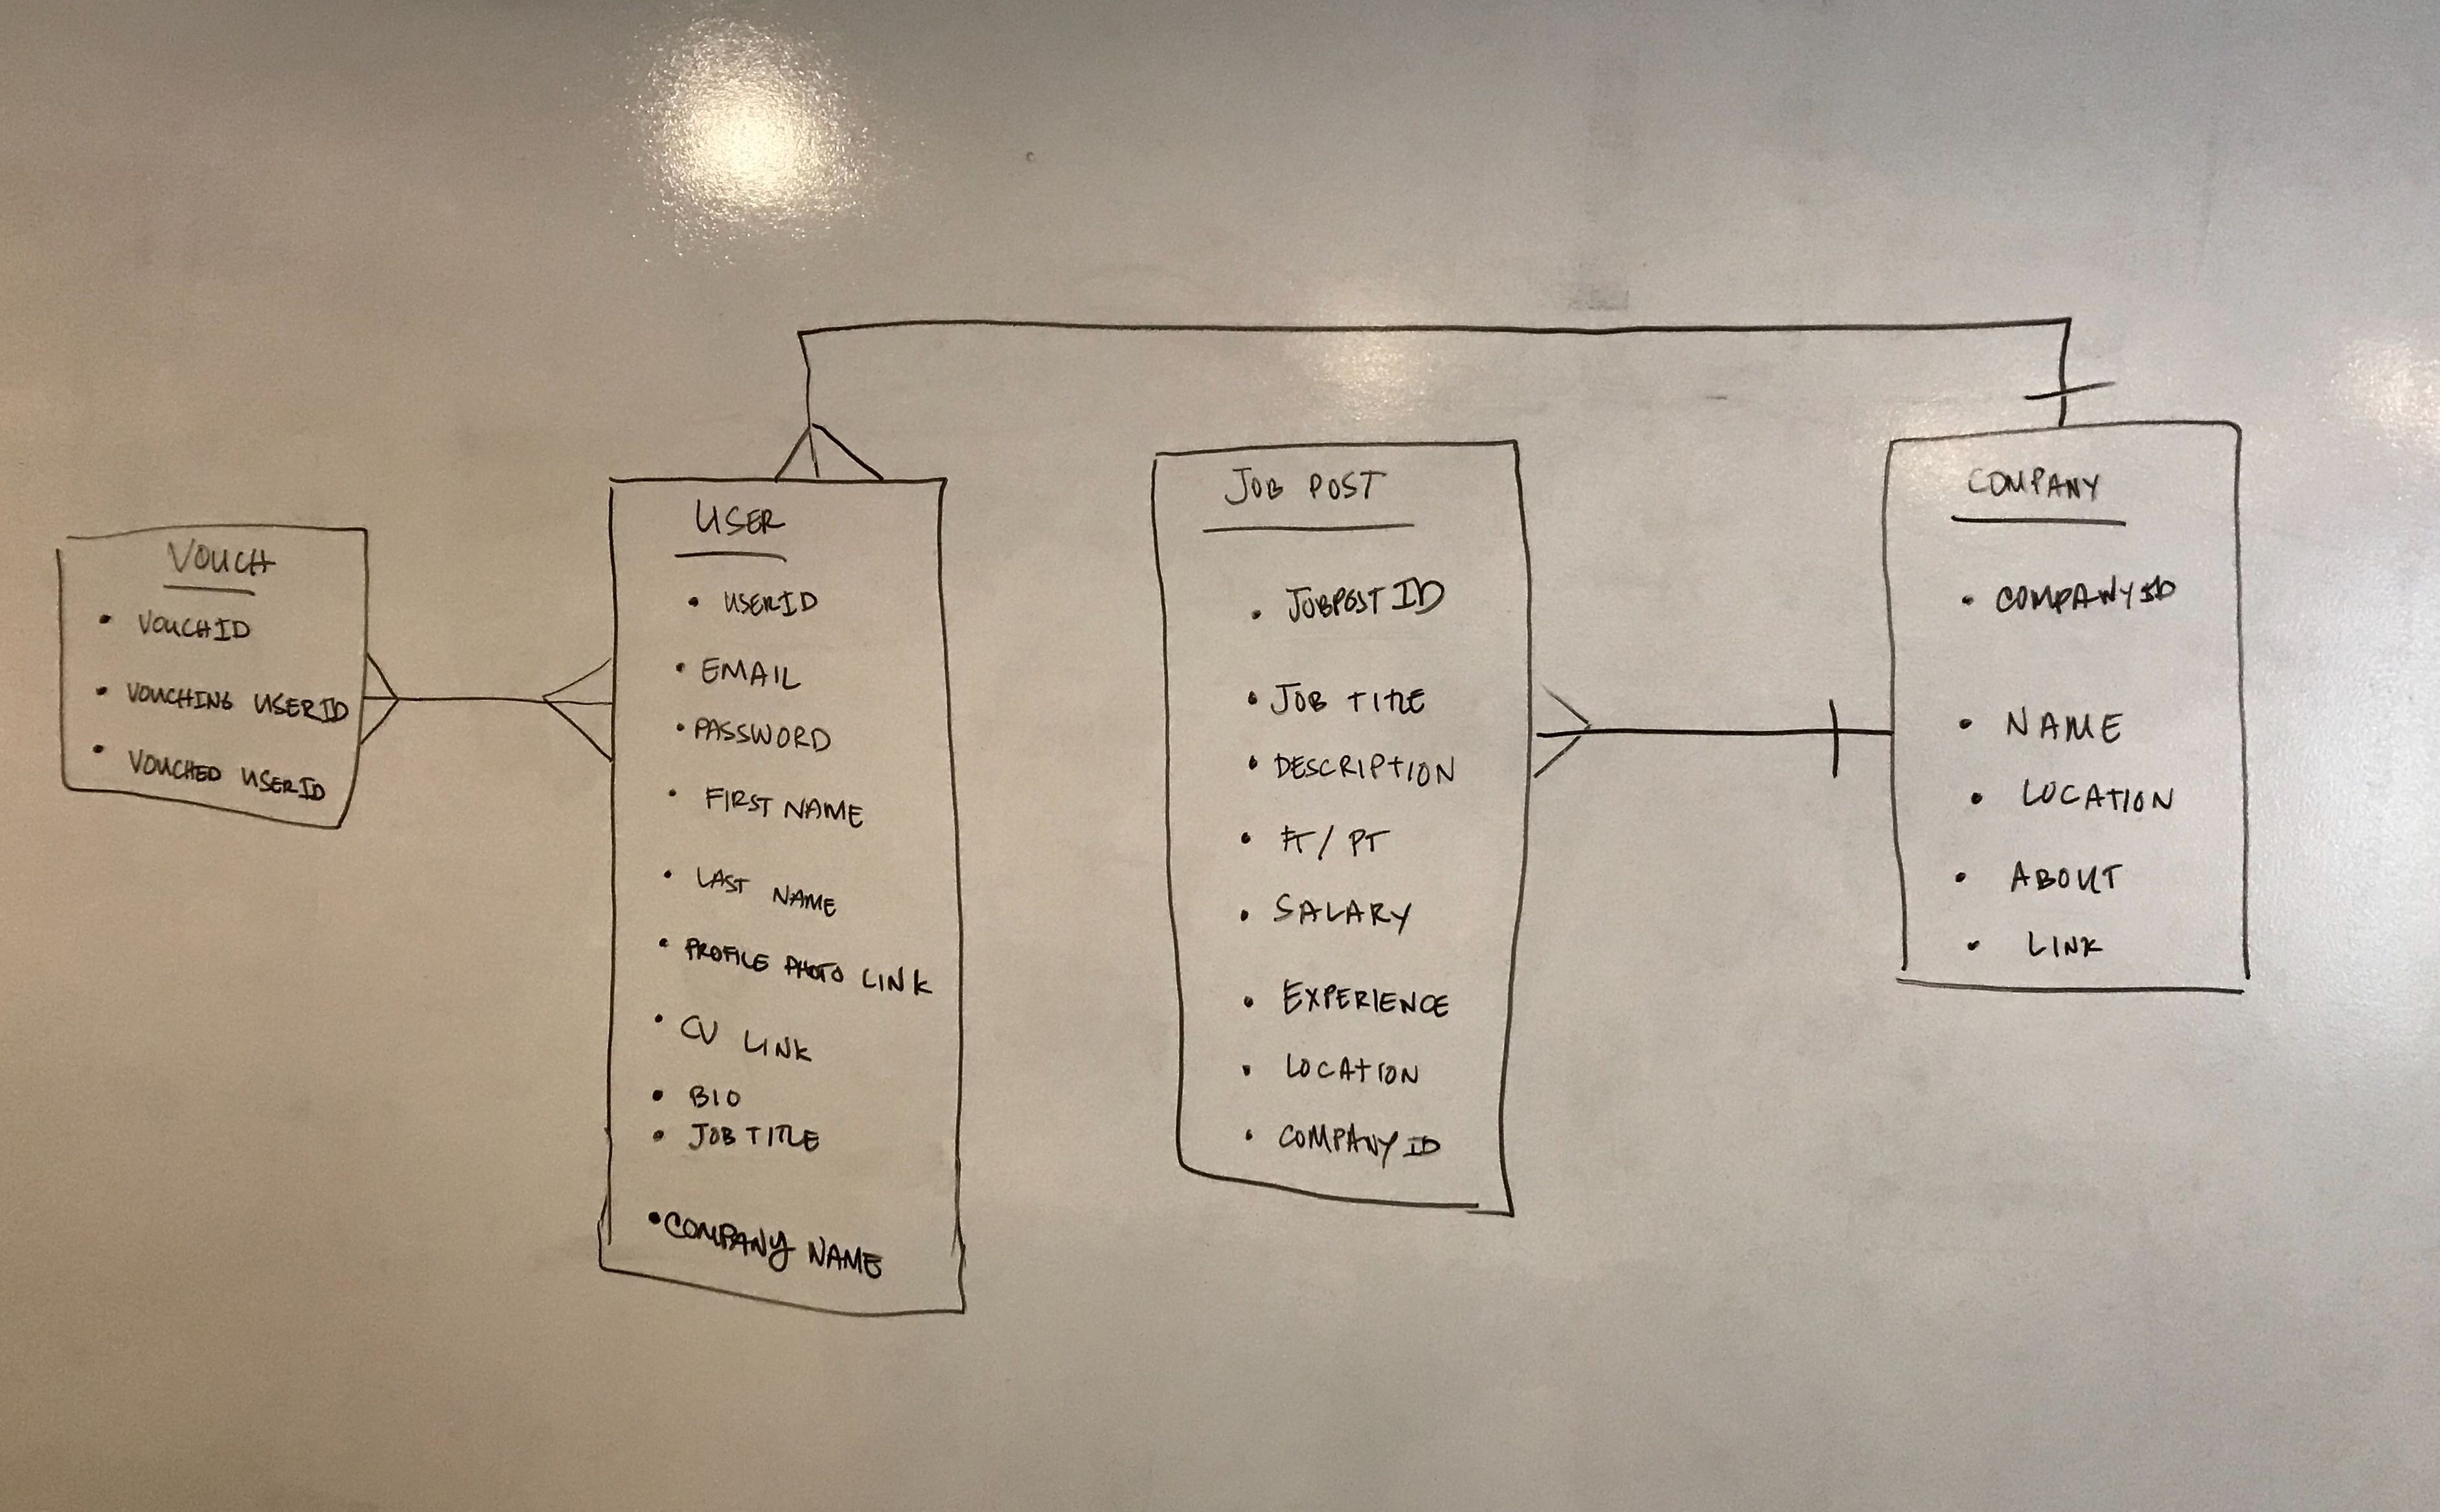 VOUCH
• VOUCHID
• VOUCHING USERID
• VOUCHED USERID
USER
• USERID
• EMAIL
• PASSWORD
• FIRST NAME
• LAST NAME
• PROFILE PHOTO LINK
• CV LINK
• BIO
• JOB TITLE
• COMPANY NAME
JOB POST
• JOBPOST ID
• JOB TITLE
• DESCRIPTION
• FT / PT
• SALARY
• EXPERIENCE
• LOCATION
• COMPANY ID
COMPANY
• COMPANY ID
• NAME
• LOCATION
• ABOUT
• LINK